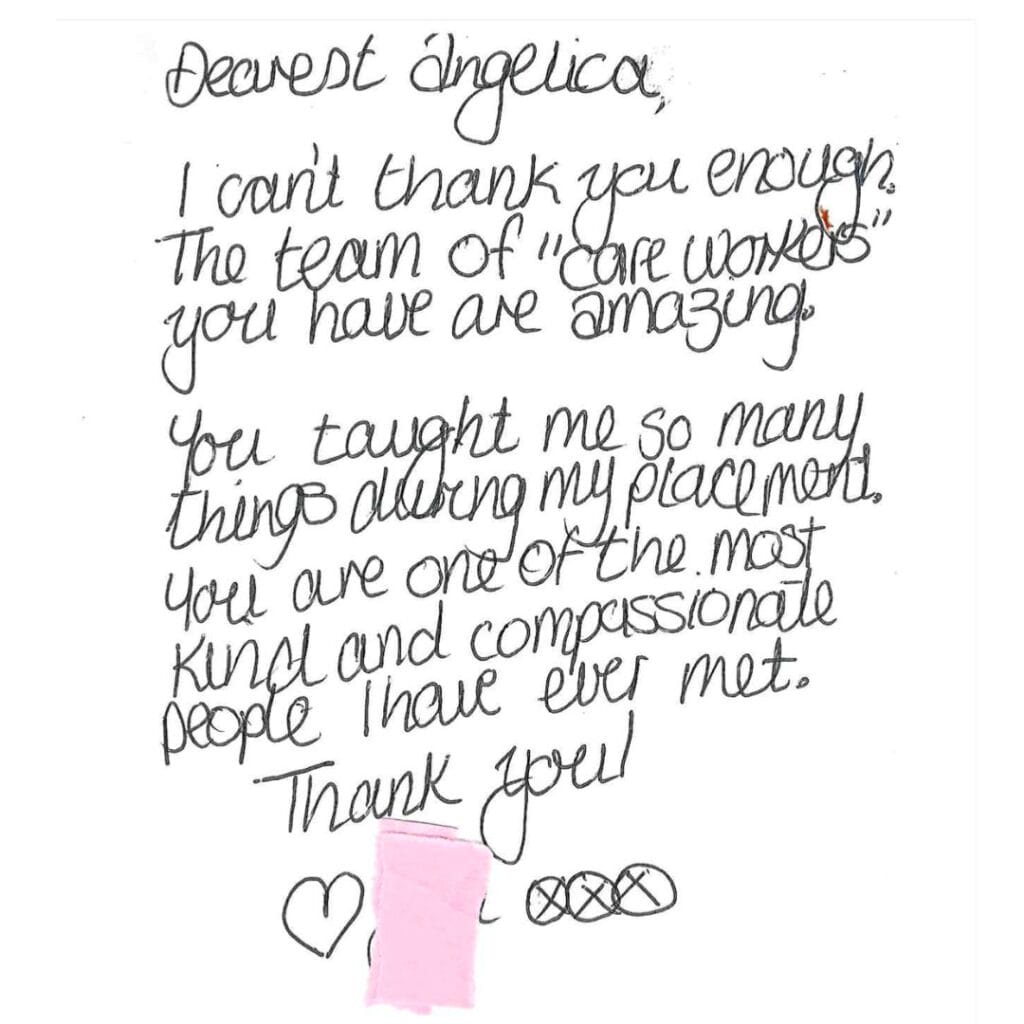 Dearest Angelica,
I can't thank you enough.
The team of "care workers"
you have are amazing.
You taught me so many
things during my placement.
You are one of the most
kind and compassionate
people I have ever met.
Thank you!
xxx